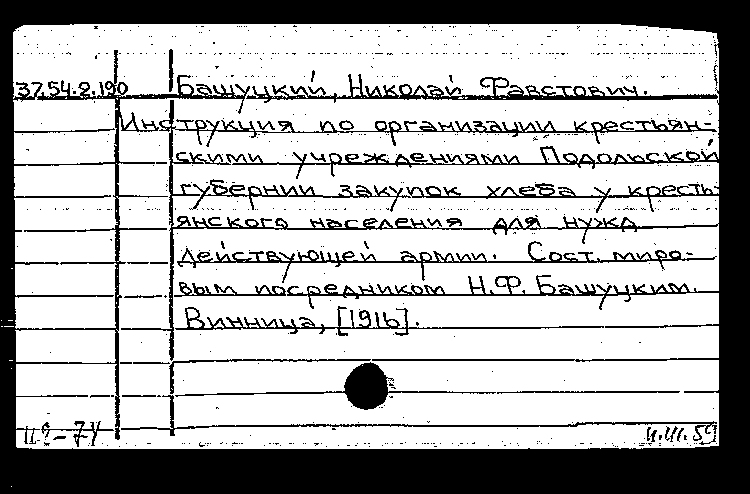 37.54.2.190 Башуцкий, Николай Фавстович.
Инструкция по организации крестьян-
скими учреждениями Подольской
губернии закупок хлеба у кресть-
янского населения для нужд
действующей армии. Сост. миро-
вым посредником Н.Ф. Башуцким.
Винница, [1916].